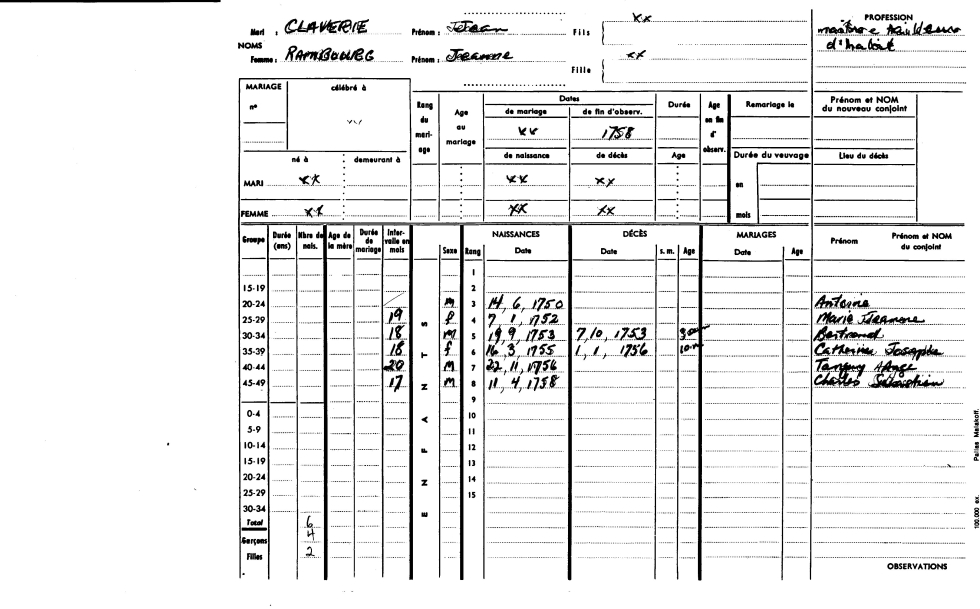 Mari : CLAVERIE Prénom : Jean Fils xx
NOMS
Femme : RAMBOURG Prénom : Jeanne Fille xx
PROFESSION
d'habit
MARIAGE célébré à
n°
né à demeurant à
MARI xx
FEMME xx
Rang du mari-age
Age au mariage
Dates
de mariage de fin d'observ.
xx 1758
de naissance de décès
xx xx
xx xx
Durée
Age
Age en fin d' observ.
Remariage le
Durée du veuvage
en
mois
Prénom et NOM du nouveau conjoint
Lieu du décès
Groupe Durée (ans) Nbre de nais. Age de la mère Durée de mariage Inter-valle en mois Sexe Rang NAISSANCES Date DÉCÈS Date s. m. Age MARIAGES Date Age Prénom Prénom et NOM du conjoint
ENFANTS
1
15-19 2
20-24 m 3 14, 6, 1750 Antoine
25-29 19 f 4 7, 1, 1752 Marie Jeanne
30-34 18 m 5 19, 9, 1753 7, 10, 1753 Bertrand
35-39 18 f 6 16, 3, 1755 1, 1, 1756 Catherine Josephe
40-44 20 m 7 22, 11, 1756 Tanguy Ange
45-49 17 m 8 11, 4, 1758 Charles Sébastien
9
0-4 10
5-9 11
10-14 12
15-19 13
20-24 14
25-29 15
30-34
Total 6
Garçons 4
Filles 2
OBSERVATIONS
100.000 ex. Pairias Malakoff.